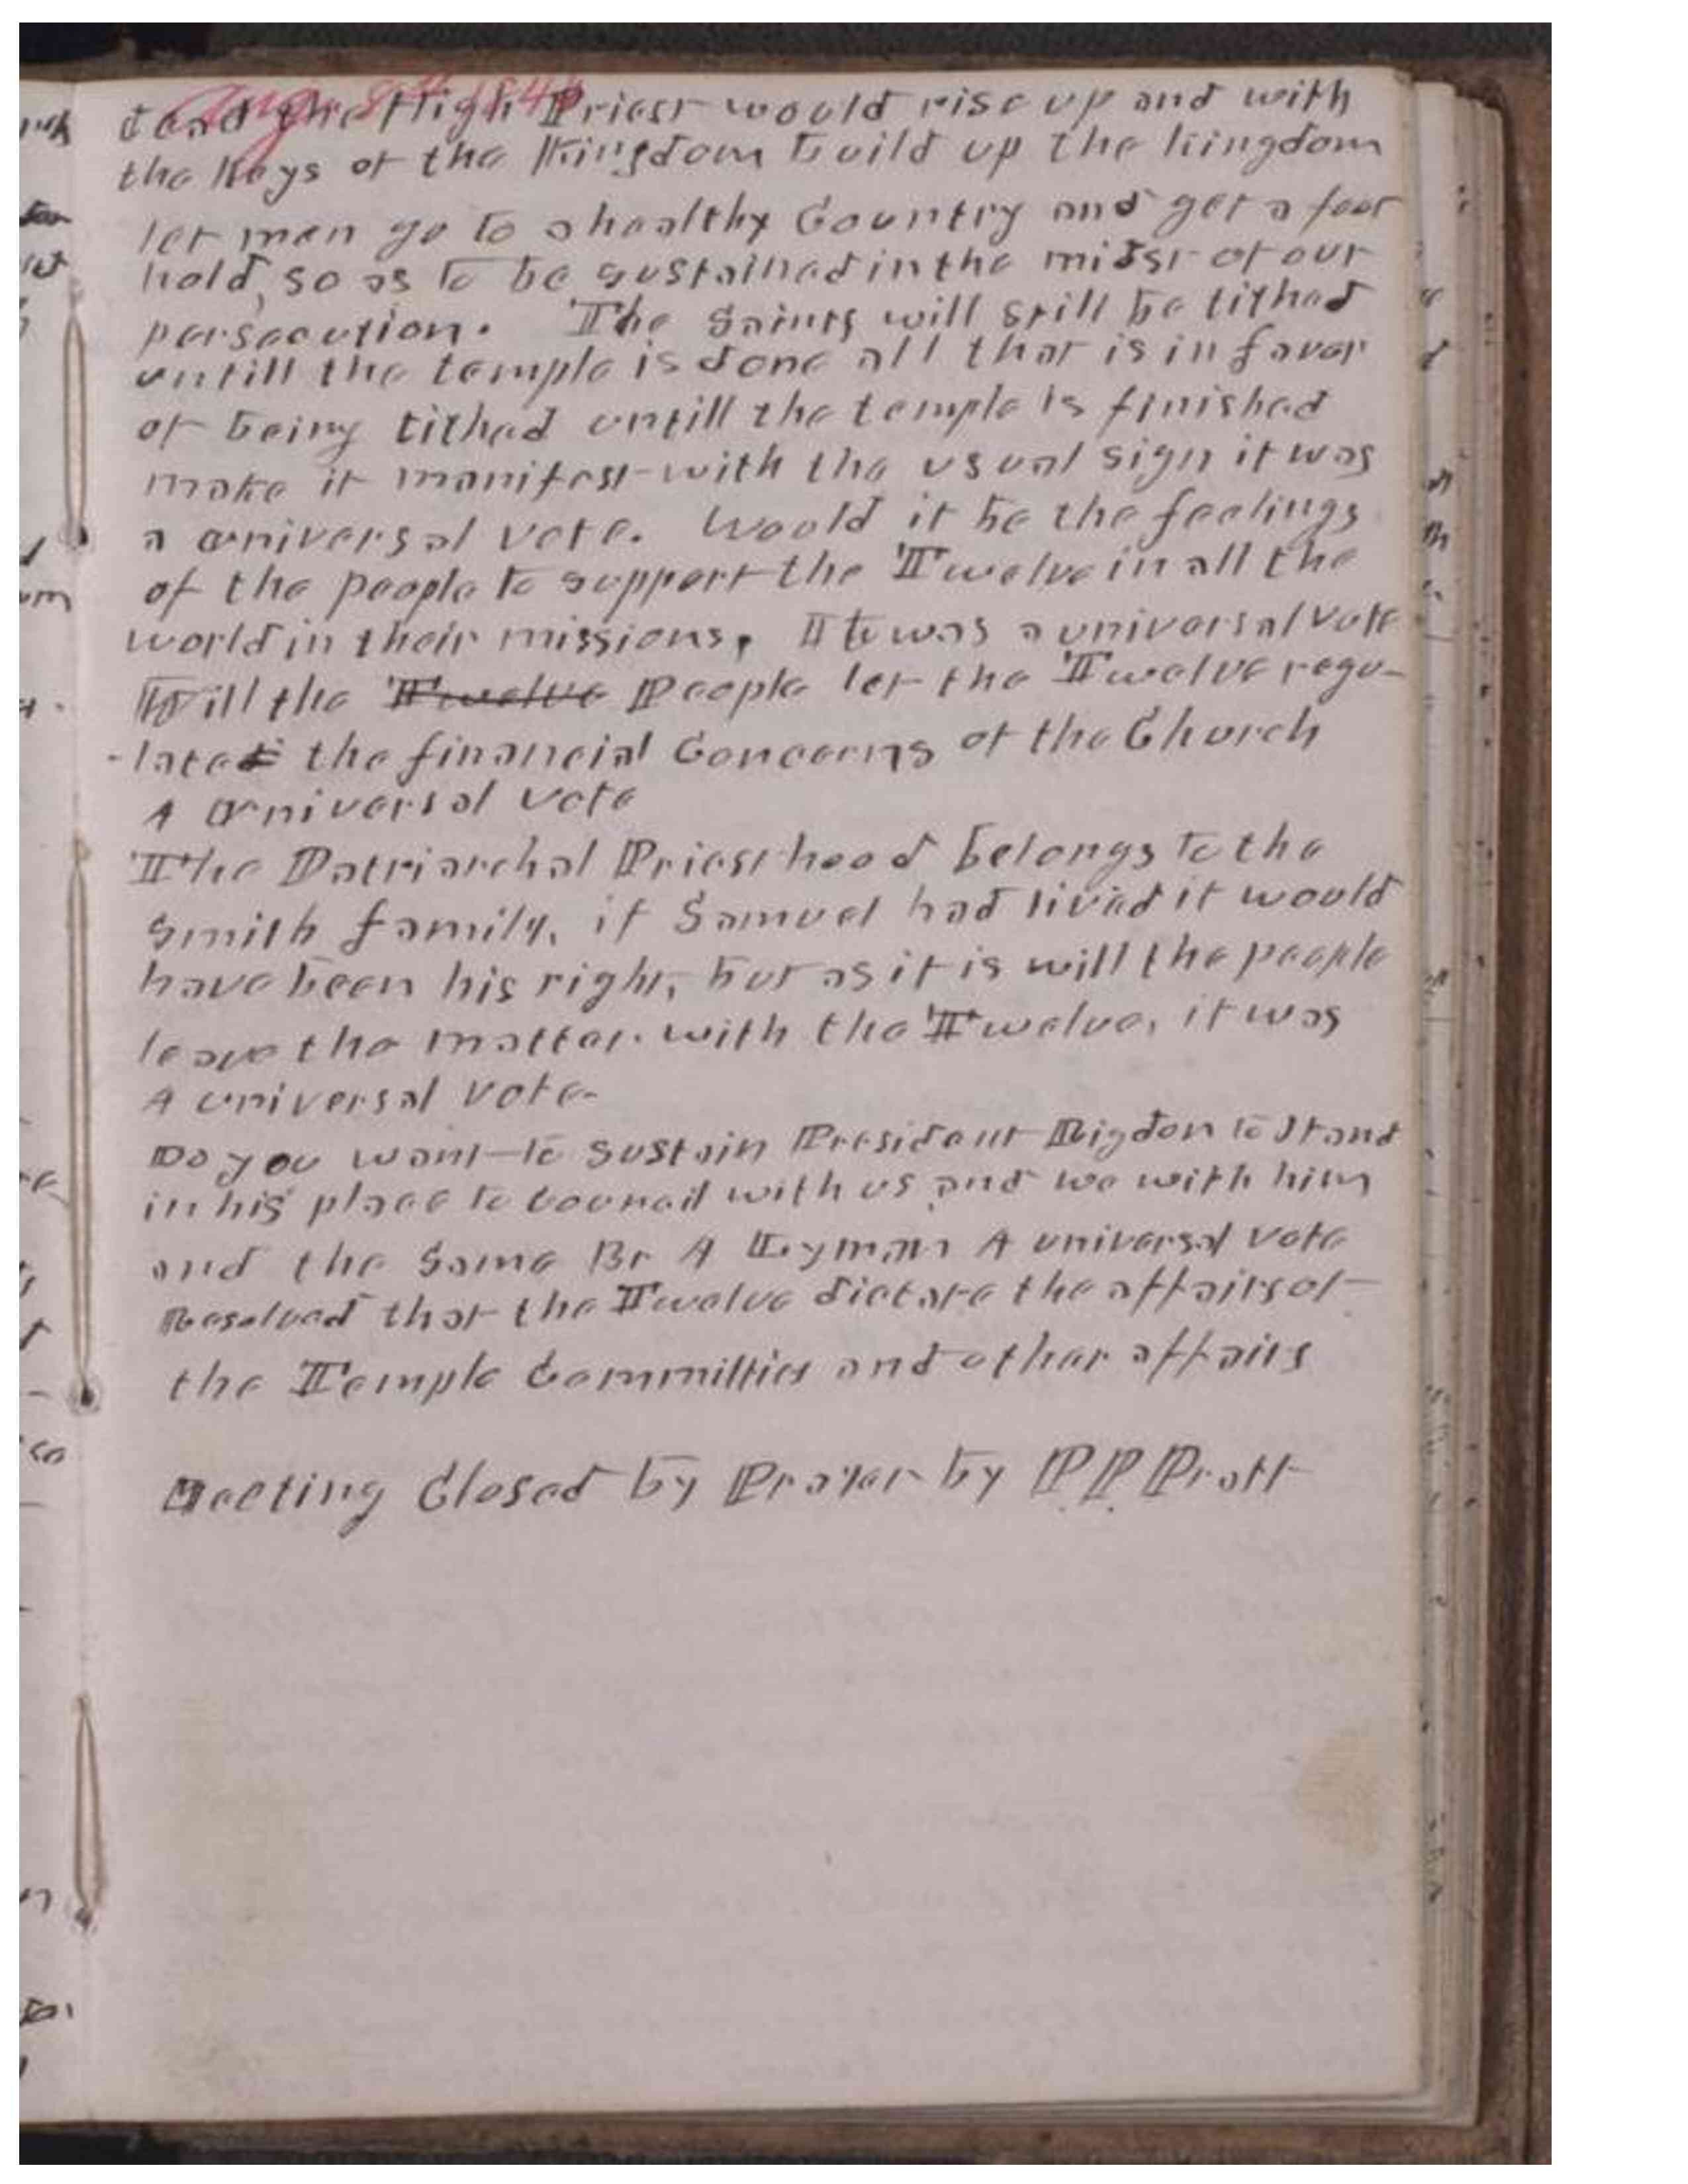 Aug 8th 1844
dead the High Priest would rise up and with
the Keys of the Kingdom build up the kingdom
let men go to a healthy Country and get a foot
hold, so as to be sustained in the midst of our
persecution. The Saints will still be tithed
untill the temple is done all that is in favor
of being tithed untill the temple is finished
make it manifest with the usual sign it was
a universal vote. Would it be the feelings
of the people to support the Twelve in all the
world in their missions, It was a universal vote
Will the Twelve People let the Twelve regu-
-late the financial Concerns of the Church
A universal vote
The Patriarchal Priesthood belongs to the
Smith family, if Samuel had lived it would
have been his right, but as it is will the people
leave the matter with the Twelve, it was
A universal vote-
Do you want to sustain President Rigdon to Stand
in his place to councail with us and we with him
and the Same Br A Lyman A universal vote
Resolved that the Twelve dictate the affairs of
the Temple Committies and other affairs
Meeting Closed by Prayer by P P Pratt